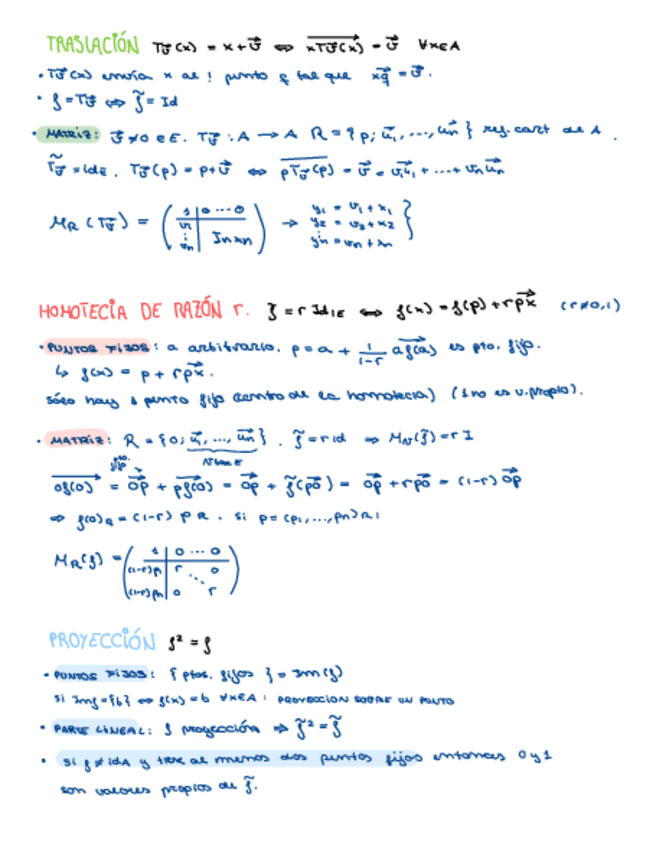 TRASLACIÓN T_v⃗(x) = x + v⃗ ⇔ \overrightarrow{xT_v⃗(x)} = v⃗ ∀x∈A
• T_v⃗(x) envía x al ! punto q tal que \overrightarrow{xq} = v⃗.
• f = T_v⃗ ⇔ f̃ = Id
• MATRIZ: v⃗ ≠ 0 ∈ E. T_v⃗ : A → A R = {p; u⃗₁, ..., u⃗ₙ} ref. cart de A.
T̃_v⃗ = id_E. T_v⃗(p) = p + v⃗ ⇔ \overrightarrow{pT_v⃗(p)} = v⃗ = v₁u⃗₁ + ... + vₙu⃗ₙ
M_R(T_v⃗) = ( 1 | 0 ... 0 → y₁ = v₁ + x₁
v₁ ⋮ vₙ | I_{n×n} ) y₂ = v₂ + x₂
yₙ = vₙ + xₙ }
HOMOTECIA DE RAZÓN r. f̃ = r Id_{IE} ⇔ f(x) = f(p) + r\overrightarrow{px} (r≠0,1)
• PUNTOS FIJOS: a arbitrario. p = a + \frac{1}{1-r} \overrightarrow{af(a)} es pto. fijo.
↳ f(x) = p + r\overrightarrow{px}.
sólo hay 1 punto fijo (centro de la homotecia) (1 no es v.propio).
• MATRIZ: R = {0; u⃗₁, ..., u⃗ₙ}. f̃ = r id ⇒ M_N(f̃) = r I
N base E
fijo.
\overrightarrow{of(o)} = \overrightarrow{op} + \overrightarrow{pf(o)} = \overrightarrow{op} + f̃(\overrightarrow{po}) = \overrightarrow{op} + r\overrightarrow{po} = (1-r)\overrightarrow{op}
⇒ f(o)_R = (1-r) p_R. si p = (p₁, ..., pₙ)_R:
M_R(f) = ( 1 | 0 ... 0
(1-r)p₁ | r 0
⋱
(1-r)pₙ | 0 r )
PROYECCIÓN f² = f
• PUNTOS FIJOS: { ptos. fijos } = Im(f)
si Imf = {b} ⇔ f(x) = b ∀x∈A : PROYECCIÓN SOBRE UN PUNTO
• PARTE LINEAL: f proyección ⇒ f̃² = f̃
• si f ≠ id_A y tiene al menos dos puntos fijos entonces 0 y 1
son valores propios de f̃.